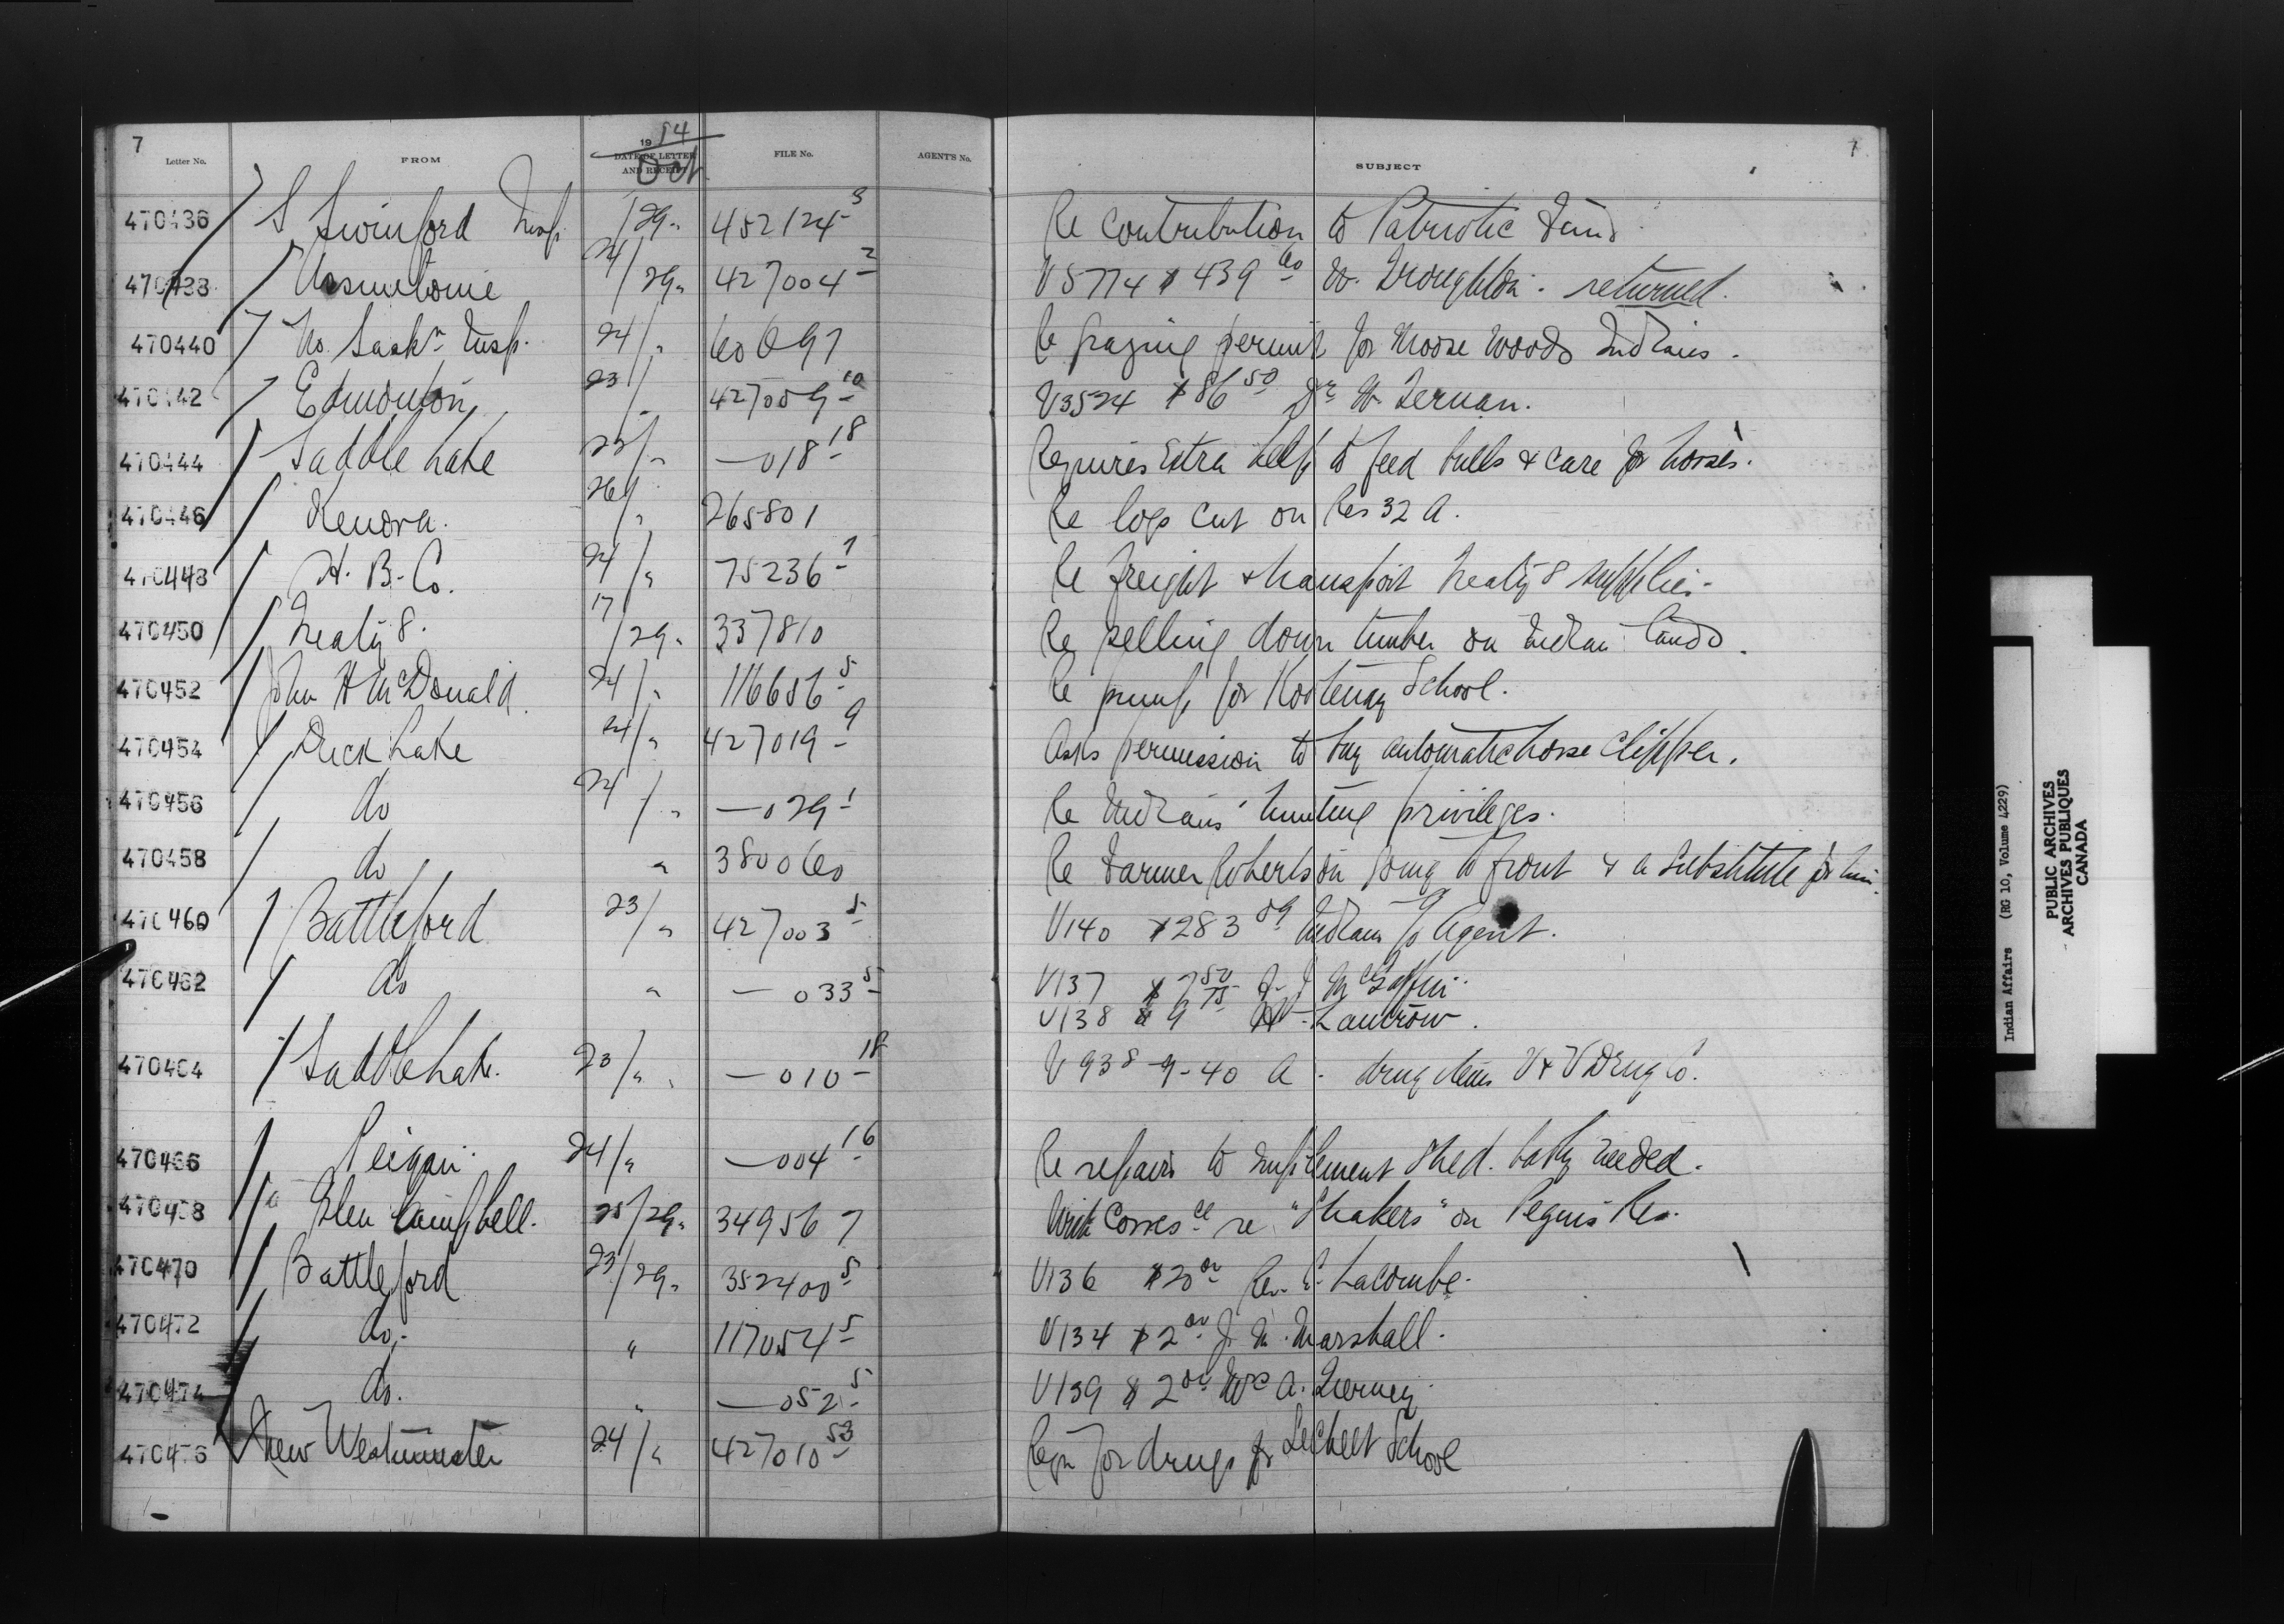 7
Letter No. FROM 1914 DATE OF LETTER AND RECEIPT Oct FILE No. AGENT'S No. SUBJECT 7
470436 S Swinford Insp. /29 " 452124-3 Re contribution to Patriotic Fund
470438 Assiniboine 24/29 " 427004-2 V5774 $439 60 W. Broughton. returned.
470440 No. Saskn Insp. 24/ " 60697 Re grazing permit for Moose Woods Indians.
470442 Edmonton 23/ " 427009-10 V3524 $86 50 Dr W. Ternan.
470444 Saddle Lake 23/ " —018-18 Requires Extra help to feed bulls & care for horses.
470446 Kenora. 26/ " 265801 Re logs cut on Res 32 A.
470448 H. B. Co. 24/ " 75236-7 Re freight & transport Treaty 8 supplies.
470450 Treaty 8. 17/29 " 337810 Re selling down timber on Indian lands.
470452 John H McDonald 24/ " 116656-5 Re pump for Kootenay School.
470454 Duck Lake 24/ " 427019-9 Asks permission to buy automatic horse clipper.
470456 do 24/ " —029-1 Re Indians' hunting privileges.
470458 do " 380060 Re Farmer Robertson going to front & a substitute for him.
470460 Battleford 23/ " 427003-5 V140 $283 09 Indians c/o Agent.
470462 do " —033-5 V137 $7 50 J. J.
V138 $9 75 Lancrow.
470464 Saddle Lake. 23/ " —010-18 V938-9-40 A. drug items V & V Drug Co.
470466 Peigan. 24/ " —004-16 Re repairs to implement shed. badly needed.
470468 Glen Campbell. 25/29 " 349567 With Corresce re "Shakers" on Peguis Res.
470470 Battleford 23/29 " 352400-5 V136 $20 00 Rev. E. Lacombe.
470472 do. " 117054-5 V134 $2 00 J. M. Marshall.
470474 do. " —052-5 V139 $2 00 A. Tierney.
470476 New Westminster 24/ " 427010-53 Reqn for drugs for Sechelt School
Indian Affairs (RG 10, Volume 4229)
PUBLIC ARCHIVES
ARCHIVES PUBLIQUES
CANADA